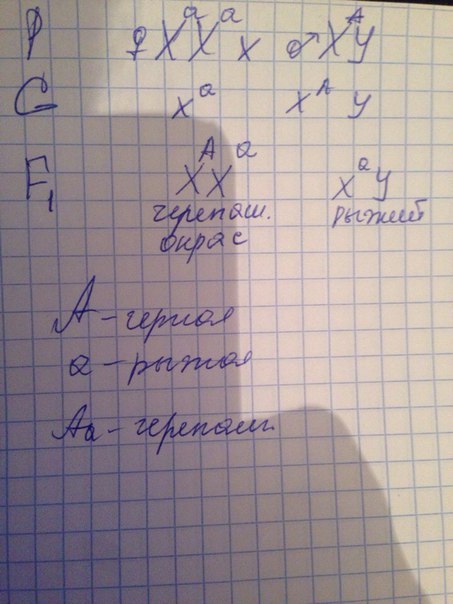 P ♀ XᵃXᵃ x ♂ XᴬY
G xᵃ xᴬ y
F₁ XᴬXᵃ xᵃy
черепаш. рыжий
окрас
A – черная
a – рыжая
Aa – черепаш.